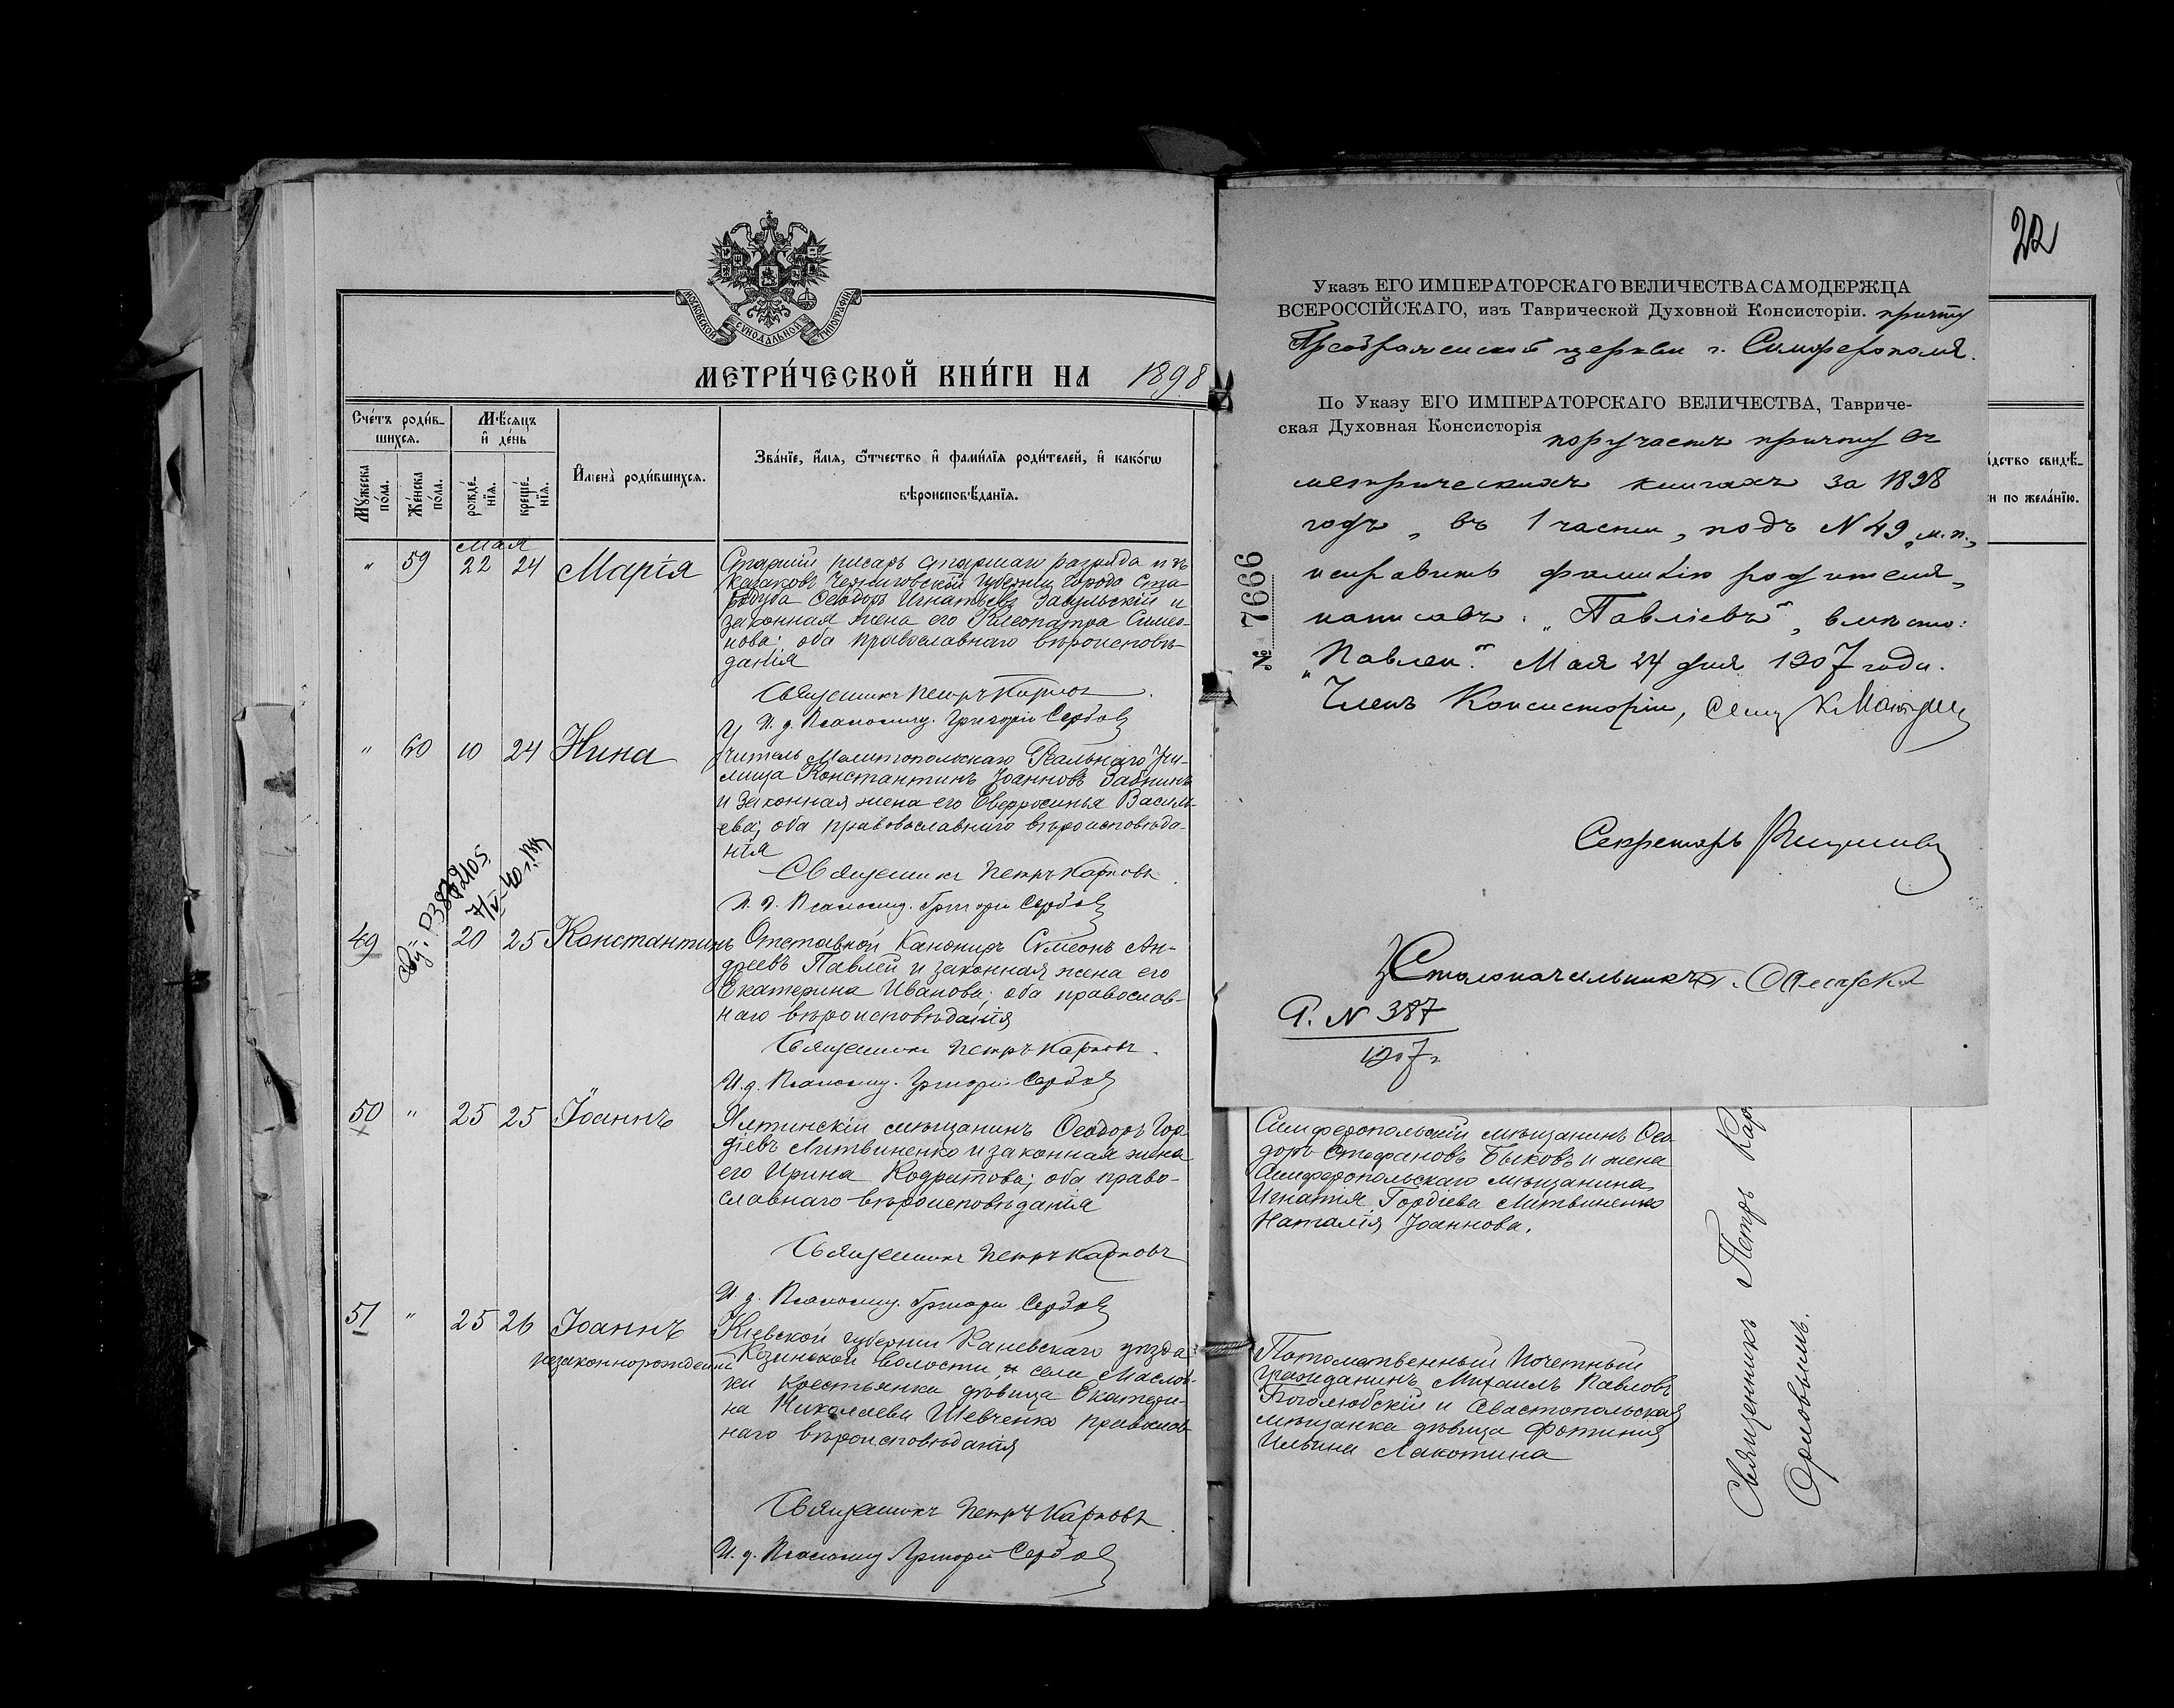 МОСКОВСКОЙ СѴНОДАЛЬНОЙ ТИПОГРАФІИ
МЕТРИ́ЧЕСКОЙ КНИ́ГИ НА 1898
Сче́тъ роди́в-
шихся.
Мѣ́сяцъ
и҆ де́нь
Мꙋ́жеска
по́ла.
Же́нска
по́ла.
рожде́-
нїѧ.
креще́-
нїѧ.
И҆мена̀ роди́вшихсѧ.
Зва́нїе, и҆́мѧ, ѻ҆́тчество и҆ фами́лїѧ роди́телей, и҆ како́гѡ
вѣроисповѣ́данїѧ.
Мая
" 59 22 24 Марія
Старшій писарь старшаго разряда изъ
казаковъ Черниговской губерніи города Ста-
родуба Ѳеодоръ Игнатьевъ Засульскій и
законная жена его Клеопатра Симео-
нова; оба православнаго вѣроисповѣ-
данія
Священникъ Петръ Карповъ
И. д. Псаломщ. Григорій Сербовъ
" 60 10 24 Нина
Учитель Мелитопольскаго Реальнаго Учи-
лища Константинъ Іоанновъ
и законная жена его Евфросинья Василь-
ева; оба православнаго вѣроисповѣда-
нія
Священникъ Петръ Карповъ
И. д. Псаломщ. Григорій Сербовъ
49 " 20 25 Константинъ
Отставной Канониръ Сѵмеонъ Ан-
дреевъ Павлей и законная жена его
Екатерина Иванова; оба православ-
наго вѣроисповѣданія
Священникъ Петръ Карповъ
И. д. Псаломщ. Григорій Сербовъ
50 " 25 25 Іоаннъ
Ялтинскій мѣщанинъ Ѳеодоръ Гор-
діевъ Литвиненко и законная жена
его Ирина Кодратова; оба право-
славнаго вѣроисповѣданія
Священникъ Петръ Карповъ
И. д. Псаломщ. Григорій Сербовъ
51 " 25 26 Іоаннъ
незаконнорожденный
Кіевской губерніи Каневскаго уѣзда
Козинской волости, села Маслов-
ки крестьянка дѣвица Екатери-
на Николаева Шевченко православ-
наго вѣроисповѣданія
Священникъ Петръ Карповъ
И. д. Псаломщ Григорій Сербовъ
22
Указъ ЕГО ИМПЕРАТОРСКАГО ВЕЛИЧЕСТВА САМОДЕРЖЦА
ВСЕРОССІЙСКАГО, изъ Таврической Духовной Консисторіи. причту
Преображенской церкви г. Симферополя.
По Указу ЕГО ИМПЕРАТОРСКАГО ВЕЛИЧЕСТВА, Тавриче-
ская Духовная Консисторія поручаетъ причту въ
метрическихъ книгахъ за 1898
годъ, въ 1 части, подъ N 49 „м. п.„
исправить фамилію родителя,
написавъ: „Павліевъ", вмѣсто:
„Павлей." Мая 24 дня 1907 года.
№ 7666
Членъ Консисторіи,
Секретарь
Столоначальникъ
Р. N 387
1907 г.
ѧ́дство свидѣ́-
и по жела́нїю.
Симферопольскій мѣщанинъ Ѳео-
доръ Стефановъ Быковъ и жена
Симферопольскаго мѣщанина
Игнатія Гордіева Литвиненко
Наталія Іоаннова.
Потомственный Почетный
гражданинъ Михаилъ Павловъ
Боголюбскій и Севастопольская
мѣщанка дѣвица Фотинія
Ильина Лакотина
Священникъ Петръ Кар
Орловымъ.